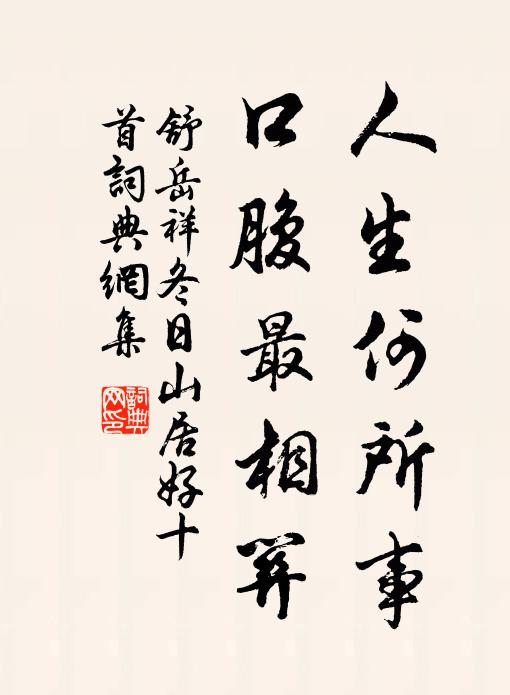 人生何所事
口腹最相關
舒岳祥冬日山居好十
首詞典網集
詞典
网印